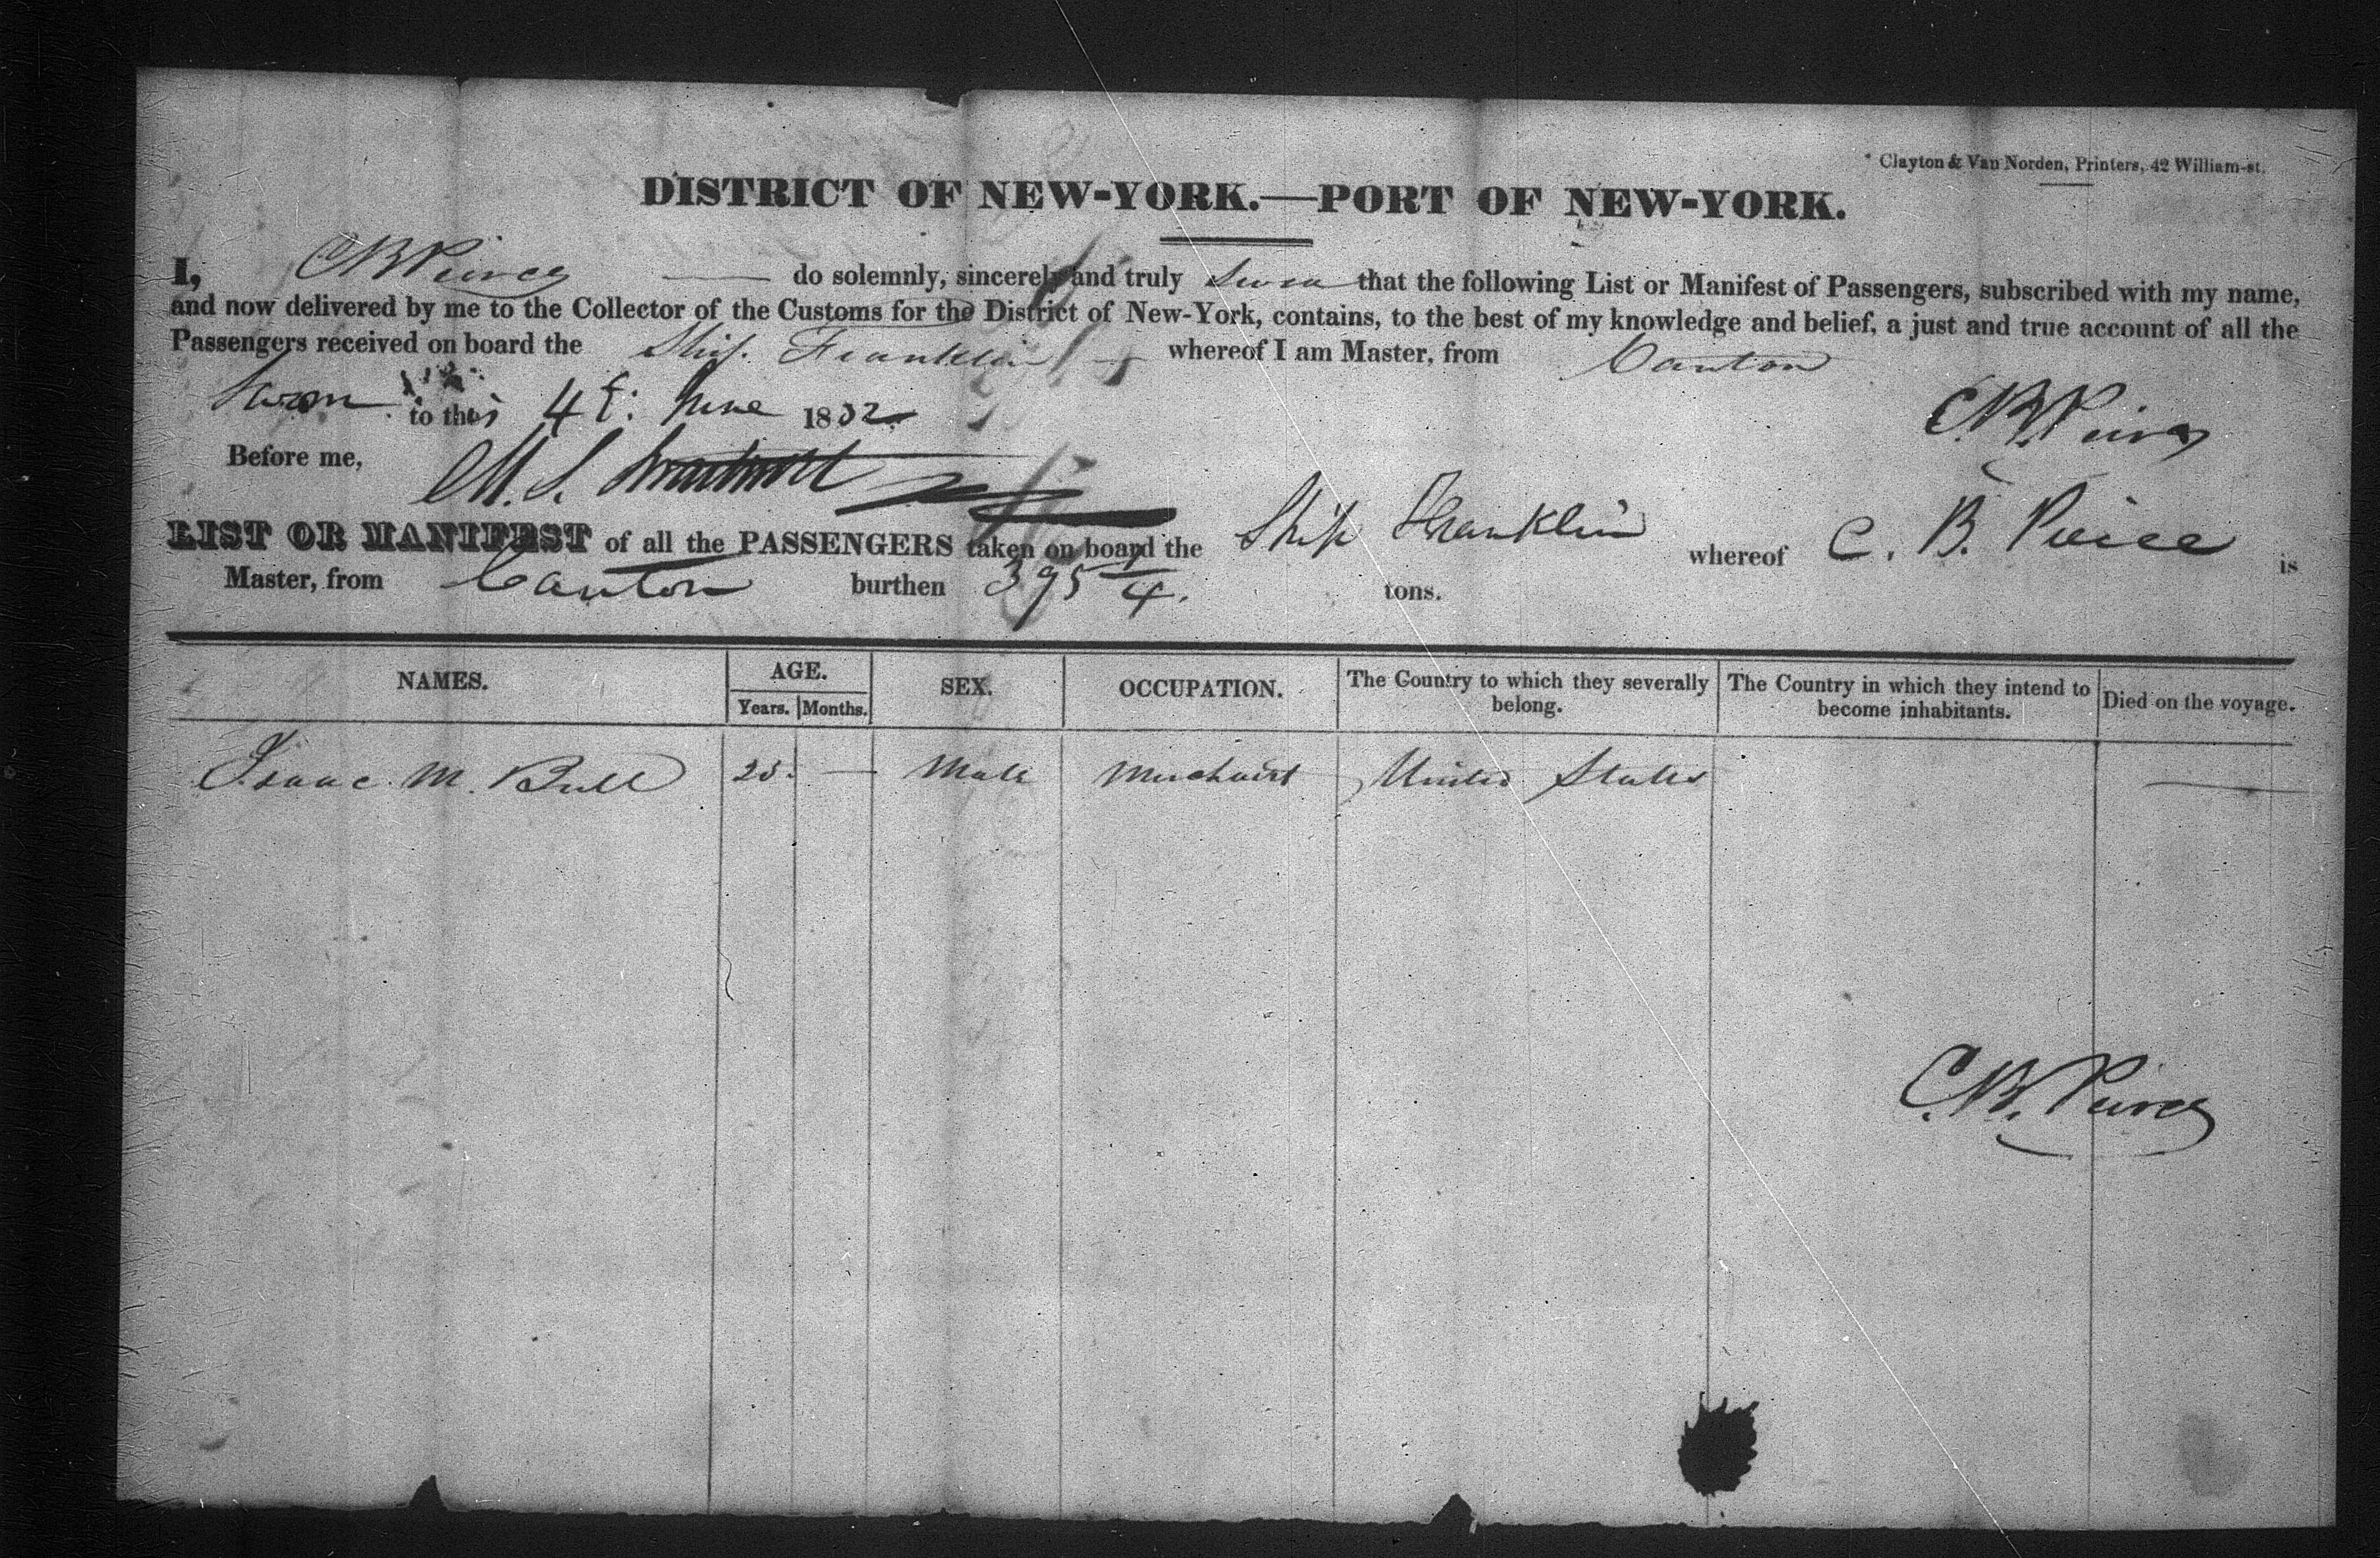 Clayton & Van Norden, Printers, 42 William-st.
DISTRICT OF NEW-YORK.—PORT OF NEW-YORK.
I, C B Peirce — do solemnly, sincerely and truly swear that the following List or Manifest of Passengers, subscribed with my name,
and now delivered by me to the Collector of the Customs for the District of New-York, contains, to the best of my knowledge and belief, a just and true account of all the
Passengers received on board the Ship Franklin — whereof I am Master, from Canton
Sworn to this 4th June 1832
C. B. Peirce
Before me, M. S.
LIST OR MANIFEST of all the PASSENGERS taken on board the Ship Franklin whereof C. B. Peirce is
Master, from Canton burthen 395 4 tons.
NAMES. AGE. Years. Months. SEX. OCCUPATION. The Country to which they severally belong. The Country in which they intend to become inhabitants. Died on the voyage.
Isaac M. Bull 25. — Male Merchant United States —
C. B. Peirce